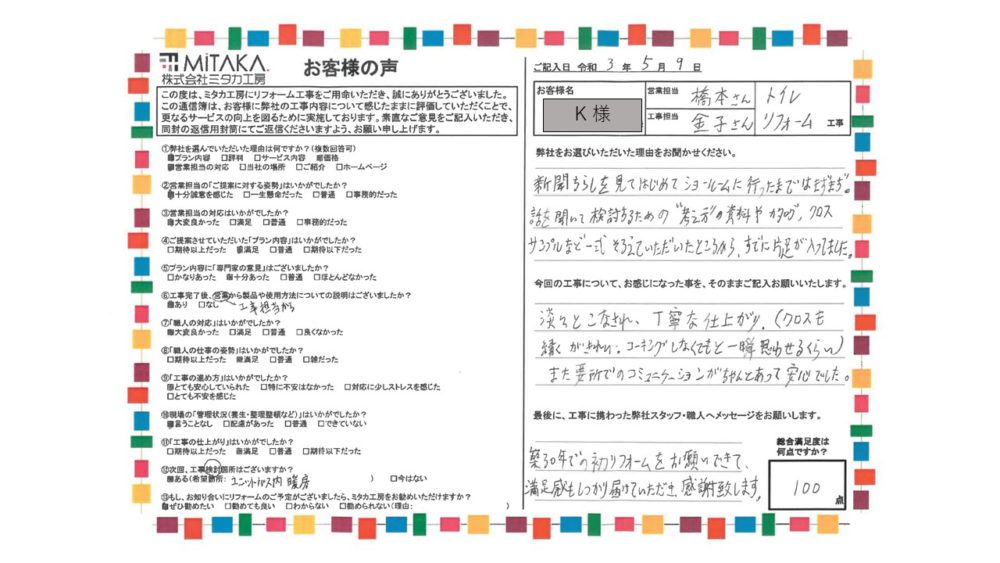 MiTAKA
株式会社ミタカ工房
お客様の声
この度は、ミタカ工房にリフォーム工事をご用命いただき、誠にありがとうございました。
この通信簿は、お客様に弊社の工事内容について感じたままに評価していただくことで、
更なるサービスの向上を図るために実施しております。素直なご意見をご記入いただき、
同封の返信用封筒にてご返信くださいますよう、お願い申し上げます。
①弊社を選んでいただいた理由は何ですか?(複数回答可)
■プラン内容 □評判 □サービス内容 ■価格
■営業担当の対応 □当社の場所 □ご紹介 □ホームページ
②営業担当の「ご提案に対する姿勢」はいかがでしたか?
■十分誠意を感じた □一生懸命だった □普通 □事務的だった
③営業担当の対応はいかがでしたか?
■大変良かった □満足 □普通 □事務的だった
④ご提案させていただいた「プラン内容」はいかがでしたか?
□期待以上だった ■満足 □普通 □期待以下だった
⑤プラン内容に「専門家の意見」はございましたか?
□かなりあった ■十分あった □普通 □ほとんどなかった
⑥工事完了後、営業から製品や使用方法についての説明はございましたか?
■あり □なし 工事担当から
⑦「職人の対応」はいかがでしたか?
■大変良かった □満足 □普通 □良くなかった
⑧「職人の仕事の姿勢」はいかがでしたか?
□期待以上だった ■満足 □普通 □雑だった
⑨「工事の進め方」はいかがでしたか?
■とても安心していられた □特に不安はなかった □対応に少しストレスを感じた
□とても不安を感じた
⑩現場の「管理状況(養生・整理整頓など)」はいかがでしたか?
■言うことなし □配慮があった □普通 □できていない
⑪「工事の仕上がり」はいかがでしたか?
□期待以上だった ■満足 □普通 □期待以下だった
⑫次回、工事検討箇所はございますか?
■ある(希望箇所: ユニットバス内 暖房 ) □今はない
⑬もし、お知り合いにリフォームのご予定がございましたら、ミタカ工房をお勧めいただけますか?
■ぜひ勧めたい □勧めても良い □わからない □勧められない(理由: )
ご記入日 令和 3 年 5 月 9 日
お客様名
K 様
営業担当 橋本さん
工事担当 金子さん
トイレ
リフォーム 工事
弊社をお選びいただいた理由をお聞かせください。
新聞ちらしを見てはじめてショールームに行ったまではまずまず。
話を聞いて検討するための"考え方"の資料やカタログ、クロス
サンプルなど一式そろえていただいたところから、すでに片足が入ってました。
今回の工事について、お感じになった事を、そのままご記入お願いいたします。
淡々とこなされ、丁寧な仕上がり。(クロスも
続くがきれい。コーキングしなくてもと一瞬思わせるくらい)
また要所でのコミュニケーションがちゃんとあって安心でした。
最後に、工事に携わった弊社スタッフ・職人へメッセージをお願いします。
築30年での初リフォームをお願いできて、
満足感もしっかり届けていただき、感謝致します。
総合満足度は
何点ですか?
100
点